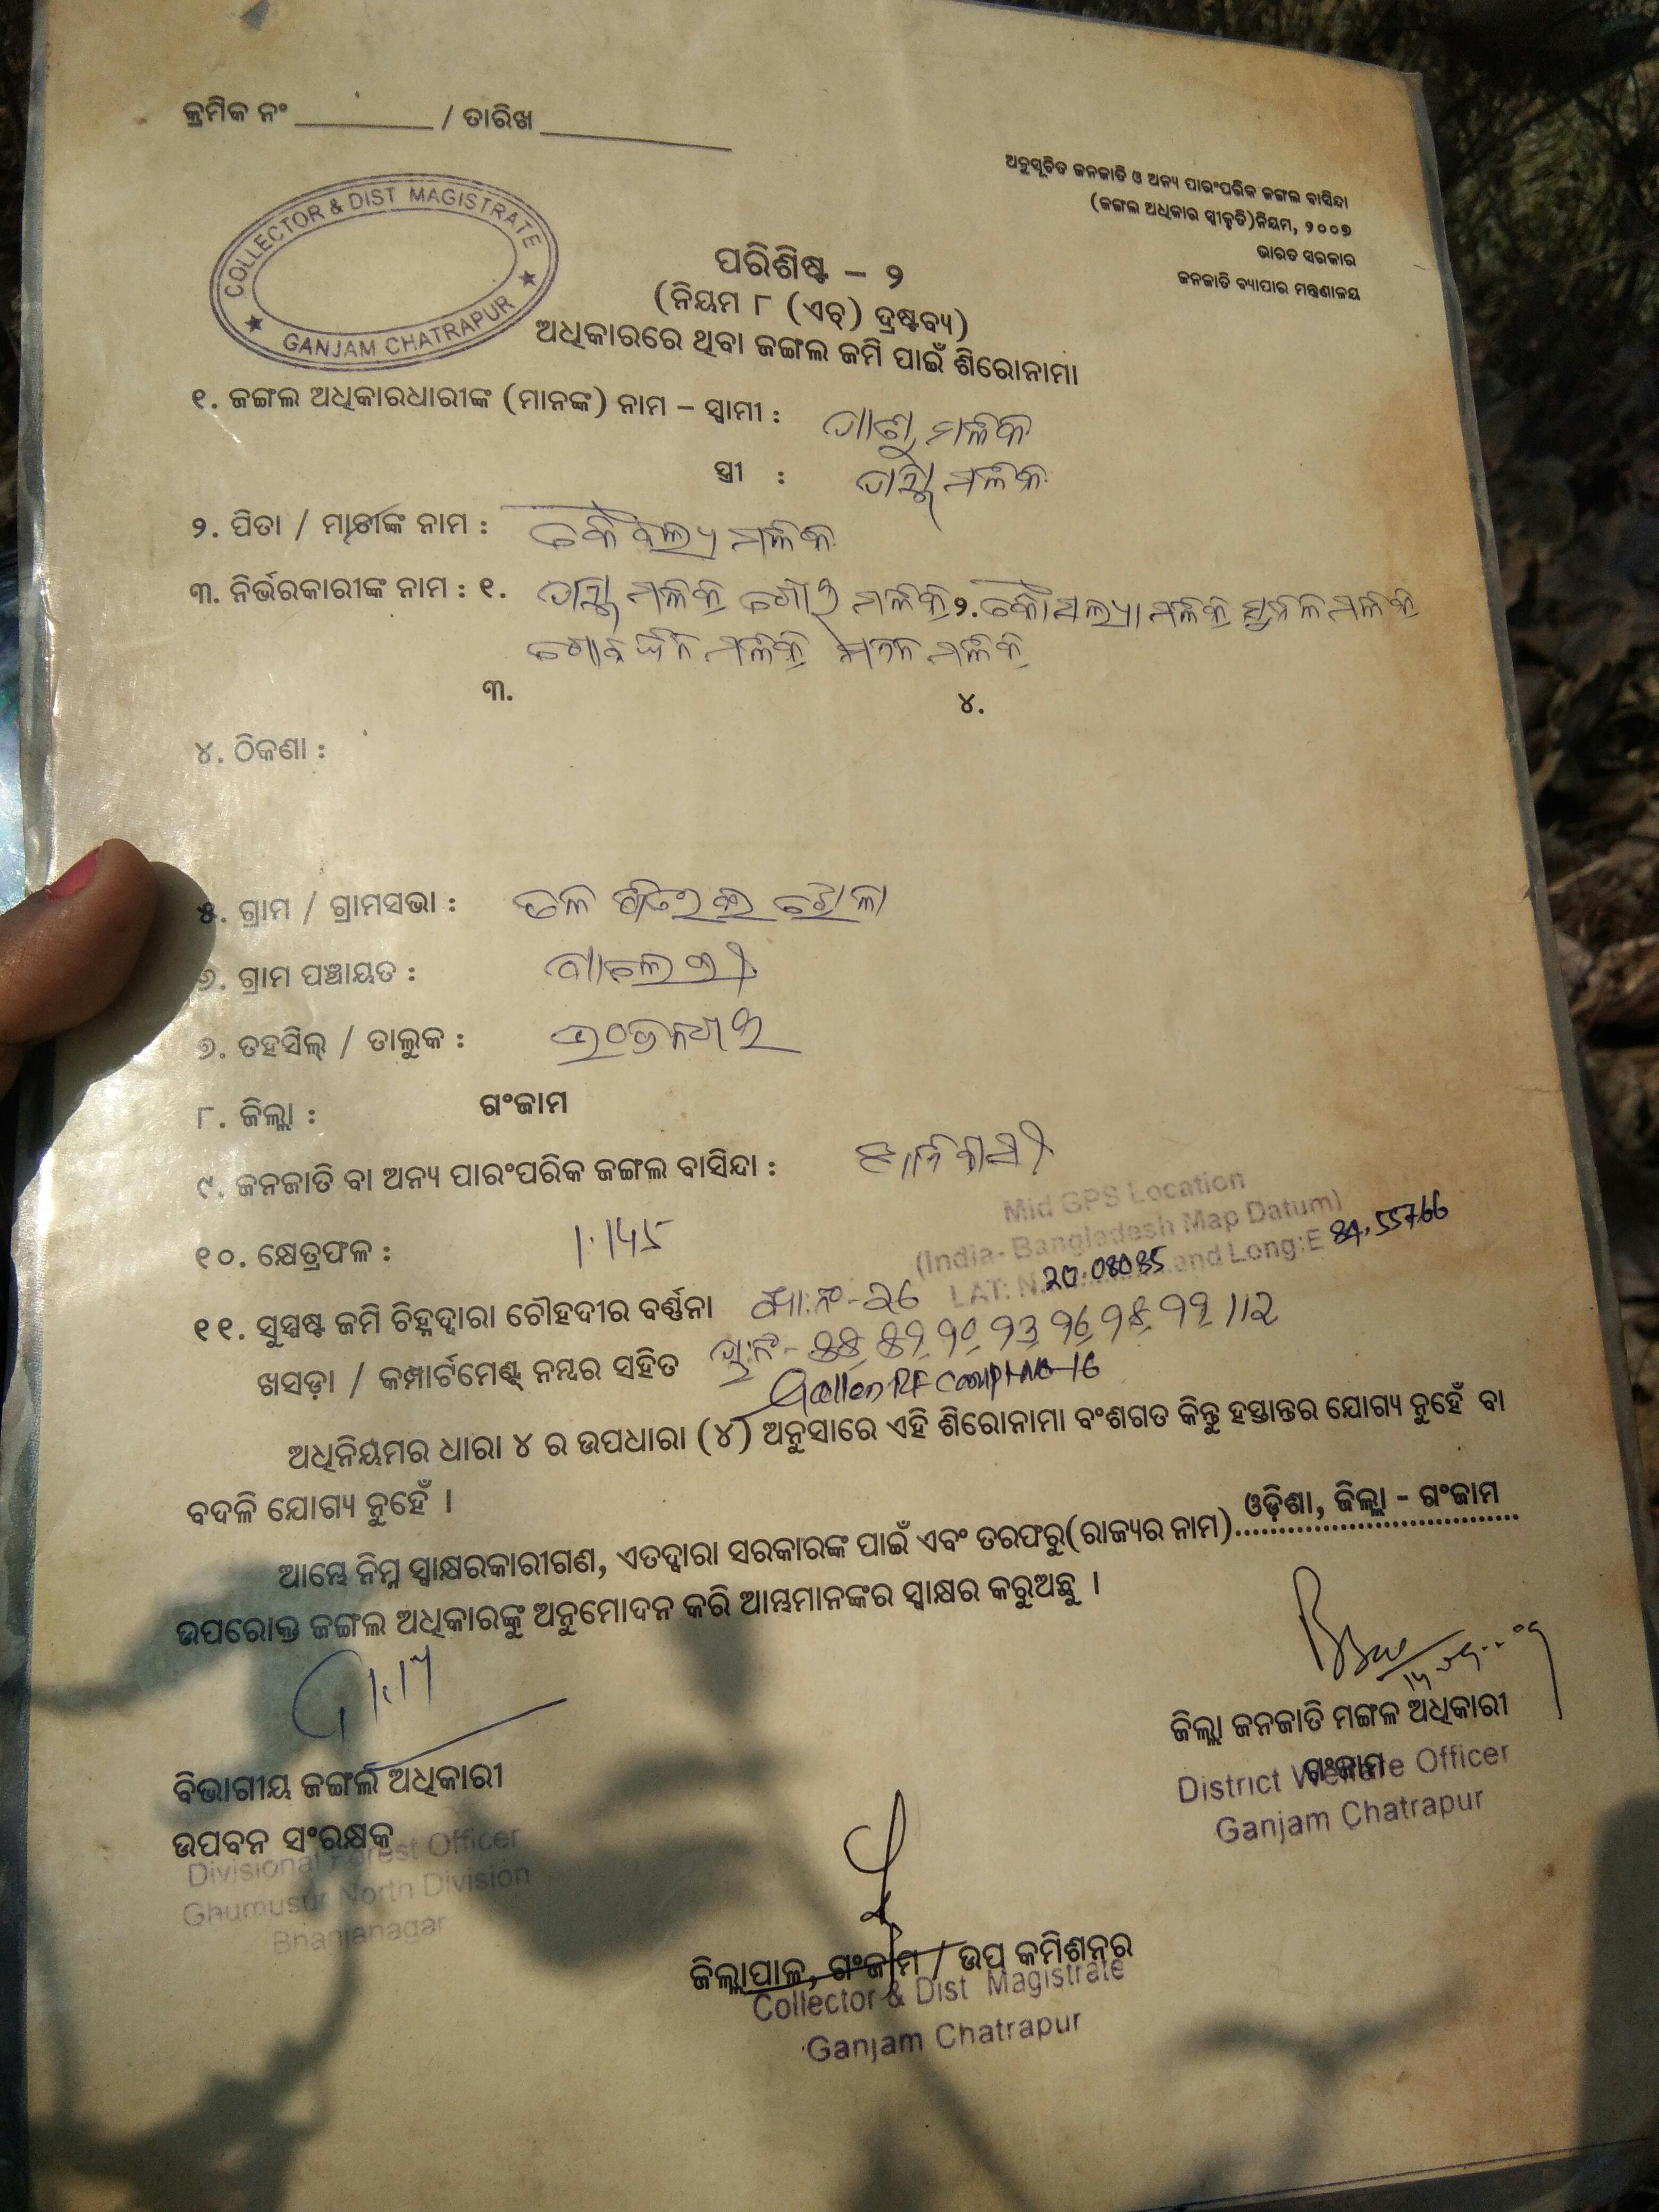 କ୍ରମିକ ନଂ ________ / ତାରିଖ ________
ଅନୁସୂଚିତ ଜନଜାତି ଓ ଅନ୍ୟ ପାରଂପରିକ ଜଙ୍ଗଲ ବାସିନ୍ଦା
(ଜଙ୍ଗଲ ଅଧିକାର ସ୍ୱୀକୃତି)ନିୟମ, ୨୦୦୭
ଭାରତ ସରକାର
ଜନଜାତି ବ୍ୟାପାର ମନ୍ତ୍ରଣାଳୟ
COLLECTOR & DIST MAGISTRATE
★ GANJAM CHATRAPUR ★
ପରିଶିଷ୍ଟ – ୨
(ନିୟମ ୮ (ଏଚ୍) ଦ୍ରଷ୍ଟବ୍ୟ)
ଅଧିକାରରେ ଥିବା ଜଙ୍ଗଲ ଜମି ପାଇଁ ଶିରୋନାମା
୧. ଜଙ୍ଗଲ ଅଧିକାରଧାରୀଙ୍କ (ମାନଙ୍କ) ନାମ – ସ୍ୱାମୀ : ମଳିକ
ସ୍ତ୍ରୀ : ମଳିକ
୨. ପିତା / ମାତାଙ୍କ ନାମ : ମଳିକ
୩. ନିର୍ଭରକାରୀଙ୍କ ନାମ : ୧. ମଳିକ ମଳିକ ୨. କୌସଲ୍ୟା ମଳିକ ମଳିକ
ଗୋବର୍ଦ୍ଧନ ମଳିକ ମଳିକ
୩. ୪.
୪. ଠିକଣା :
୫. ଗ୍ରାମ / ଗ୍ରାମସଭା : ତଳ
୬. ଗ୍ରାମ ପଞ୍ଚାୟତ :
୭. ତହସିଲ୍ / ତାଲୁକ :
୮. ଜିଲ୍ଲା : ଗଂଜାମ
୯. ଜନଜାତି ବା ଅନ୍ୟ ପାରଂପରିକ ଜଙ୍ଗଲ ବାସିନ୍ଦା : ଆଦିବାସୀ
Mid GPS Location
(India- Bangladesh Map Datum)
LAT: N 20.08085 and Long:E 84.55766
୧୦. କ୍ଷେତ୍ରଫଳ :
୧୧. ସୁସ୍ପଷ୍ଟ ଜମି ଚିହ୍ନଦ୍ୱାରା ଚୌହଦୀର ବର୍ଣ୍ଣନା
ଖସଡ଼ା / କମ୍ପାର୍ଟମେଣ୍ଟ୍ ନମ୍ବର ସହିତ
Gallery RF Compt-No-16
ଅଧିନିୟମର ଧାରା ୪ ର ଉପଧାରା (୪) ଅନୁସାରେ ଏହି ଶିରୋନାମା ବଂଶଗତ କିନ୍ତୁ ହସ୍ତାନ୍ତର ଯୋଗ୍ୟ ନୁହେଁ ବା
ବଦଳି ଯୋଗ୍ୟ ନୁହେଁ ।
ଆମ୍ଭେ ନିମ୍ନ ସ୍ୱାକ୍ଷରକାରୀଗଣ, ଏତଦ୍ୱାରା ସରକାରଙ୍କ ପାଇଁ ଏବଂ ତରଫରୁ(ରାଜ୍ୟର ନାମ) ଓଡ଼ିଶା, ଜିଲ୍ଲା - ଗଂଜାମ
ଉପରୋକ୍ତ ଜଙ୍ଗଲ ଅଧିକାରଙ୍କୁ ଅନୁମୋଦନ କରି ଆମ୍ଭମାନଙ୍କର ସ୍ୱାକ୍ଷର କରୁଅଛୁ ।
ଜିଲ୍ଲା ଜନଜାତି ମଙ୍ଗଳ ଅଧିକାରୀ
ଗଂଜାମ
District Welfare Officer
Ganjam Chatrapur
ବିଭାଗୀୟ ଜଙ୍ଗଲ ଅଧିକାରୀ
ଉପବନ ସଂରକ୍ଷକ
Divisional Forest Officer
Ghumusur North Division
Bhanjanagar
ଜିଲ୍ଲାପାଳ, ଗଂଜାମ / ଉପ କମିଶନର
Collector & Dist Magistrate
Ganjam Chatrapur